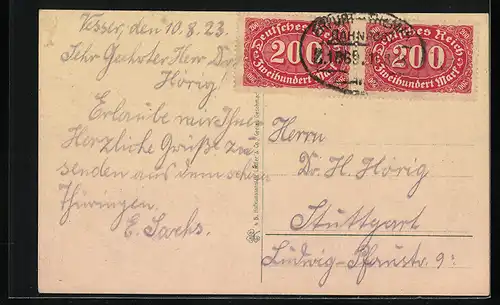 Vesser, den 10.8.23.
Sehr Geehrter Herr Dr.
Hörig
Erlaube mir Ihnen
Herzliche Grüße zu
senden aus dem schönen
Thüringen.
E. Sachs.
Deutsches Reich
200
Zweihundert Mark
Deutsches Reich
200
Zweihundert Mark
BAHNPOST
Herrn
Dr. H. Hörig
Stuttgart
Ludwig-Pfaustr. 9.